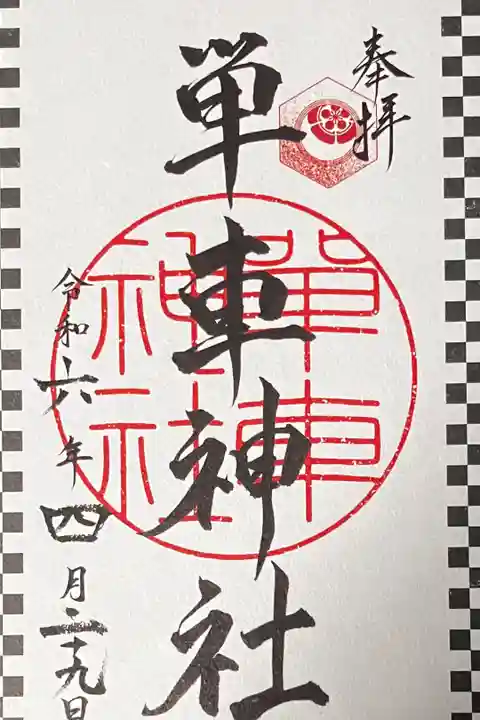 奉拝
単車神社
単車神社
令和六年四月二十九日